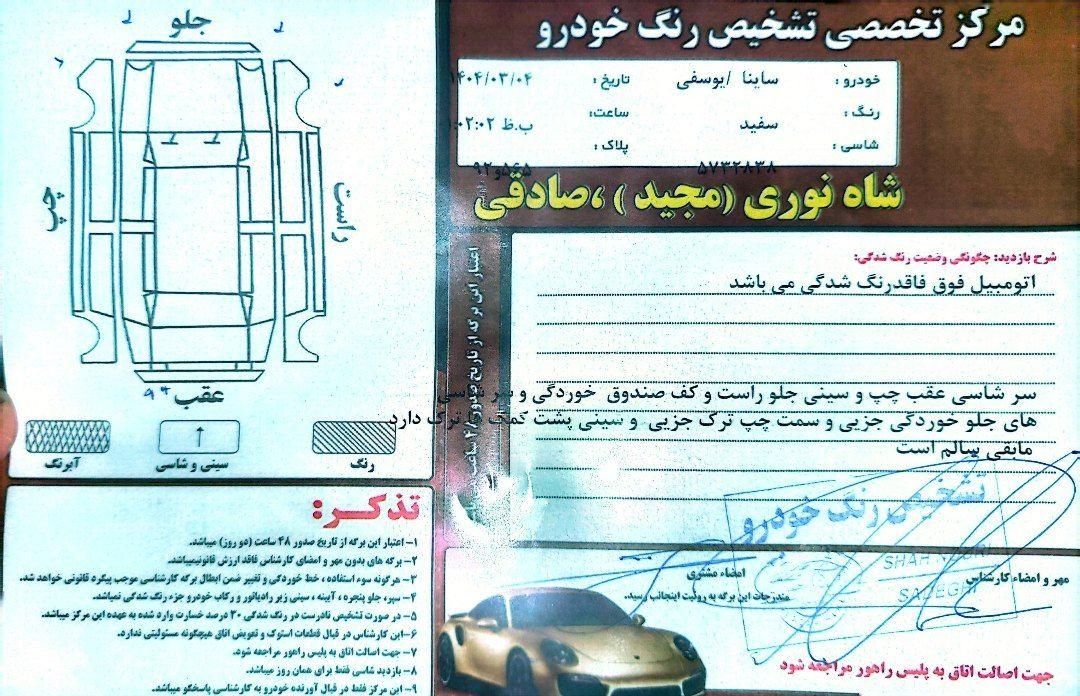 مرکز تخصصی تشخیص رنگ خودرو
خودرو : ساینا /یوسفی
تاریخ : ۱۴۰۴/۰۳/۰۴
رنگ : سفید
ساعت : ب.ظ ۰۲:۰۲:
شاسی : ۵۷۳۲۸۳۸
پلاک : ۵۶۵و۹۲
شاه نوری (مجید ) ،صادقی
شرح بازدید: چگونگی وضعیت رنگ شدگی:
اتومبیل فوق فاقدرنگ شدگی می باشد
سر شاسی عقب چپ و سینی جلو راست و کف صندوق خوردگی و سر شاسی
های جلو خوردگی جزیی و سمت چپ ترک جزیی و سینی پشت کمک ها ترک دارد
مابقی سالم است
اعتبار این برگه از تاریخ صدور ۴۸ ساعت
تشخیص رنگ خودرو
SHAH NOORI
SADEGHI
مهر و امضاء کارشناس
امضاء مشتری
مندرجات این برگه به رویت اینجانب رسید.
جهت اصالت اتاق به پلیس راهور مراجعه شود
جلو
چپ
راست
عقب
رنگ
سینی و شاسی
آبرنگ
تذکر:
۱- اعتبار این برگه از تاریخ صدور ۴۸ ساعت (دو روز) میباشد.
۲- برگه های بدون مهر و امضای کارشناس فاقد ارزش قانونیمیباشد.
۳- هرگونه سوء استفاده ، خط خوردگی و تغییر ضمن ابطال برگه کارشناسی موجب پیگرد قانونی خواهد شد.
۴- سپر، جلو پنجره ، آیینه ، سینی زیر رادیاتور و رکاب خودرو جزء رنگ شدگی نمیباشد.
۵- در صورت تشخیص نادرست در رنگ شدگی ۳۰ درصد خسارت وارد شده به عهده این مرکز میباشد.
۶- این کارشناس در قبال قطعات استوک و تعویض اتاق هیچگونه مسئولیتی ندارد.
۷- جهت اصالت اتاق به پلیس راهور مراجعه شود.
۸- بازدید شاسی فقط برای همان روز میباشد.
۹- این مرکز فقط در قبال آورنده خودرو به کارشناسی پاسخگو میباشد.